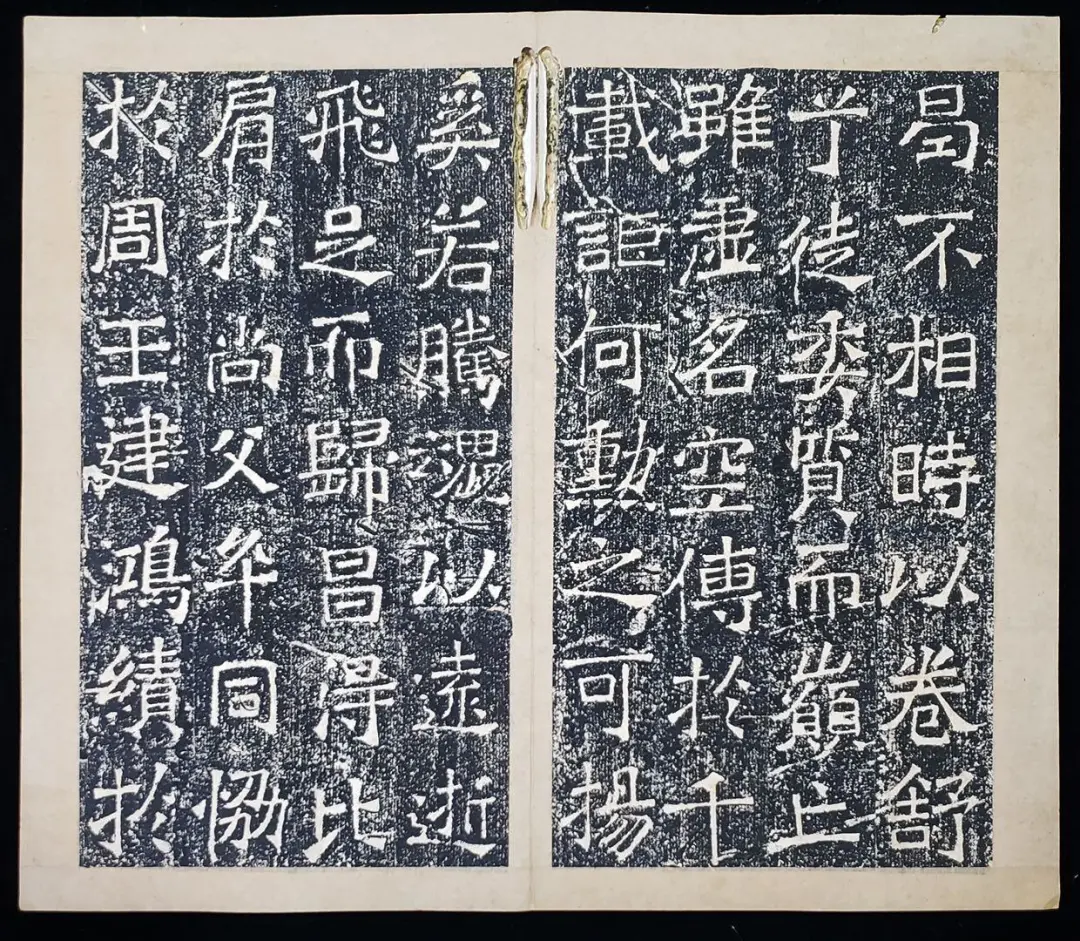 曷不相時以卷舒
兮徒委質而巔亡
雖虛名空傳於千
載詎何勳之可揚
奚若騰以遠逝
飛足而歸昌得比
肩於尚父卒同恊
於周王建鴻績於